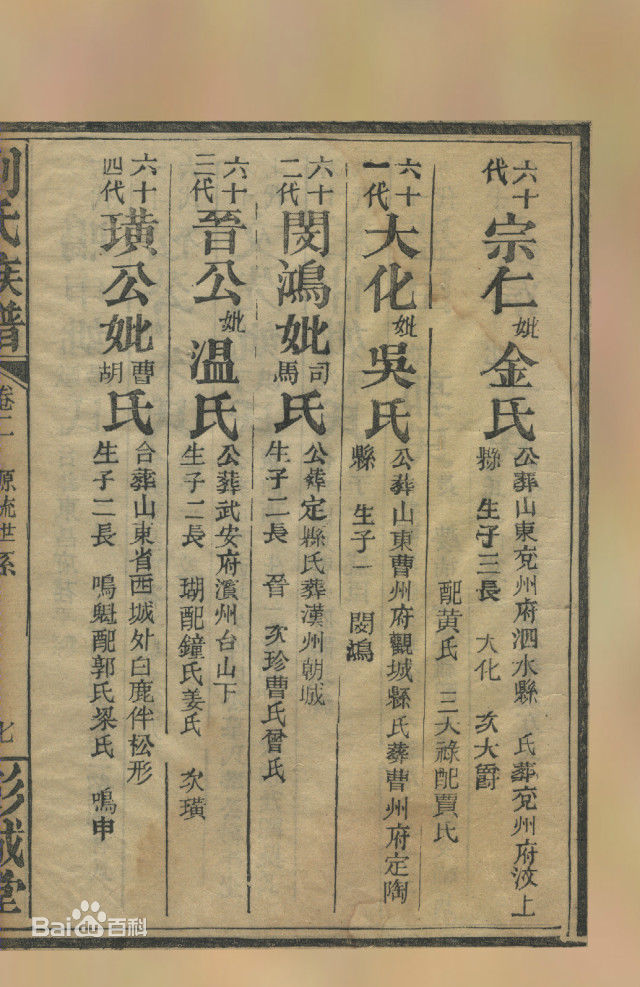 六十代 宗仁 妣金氏 公葬山東兖州府泗水縣 氏葬兖州府汶上
縣 生子三長 大化 次大爵
配黄氏 三大祿配賈氏
六十一代 大化 妣吳氏 公葬山東曹州府觀城縣氏葬曹州府定陶
縣 生子一 閔鴻
六十二代 閔鴻妣司馬氏 公葬定縣氏葬漢州朝城
生子二長 晉 次珍曹氏曾氏
六十三代 晉公 妣温氏 公葬武安府濱州台山下
生子二長 瑚配鐘氏姜氏 次璜
六十四代 璜公妣曹胡氏 合葬山東省西城外白鹿伴松形
生子二長 鳴魁配郭氏梁氏 鳴申
劉氏族譜 卷二 原流世系 七 彭城堂
Baidu百科